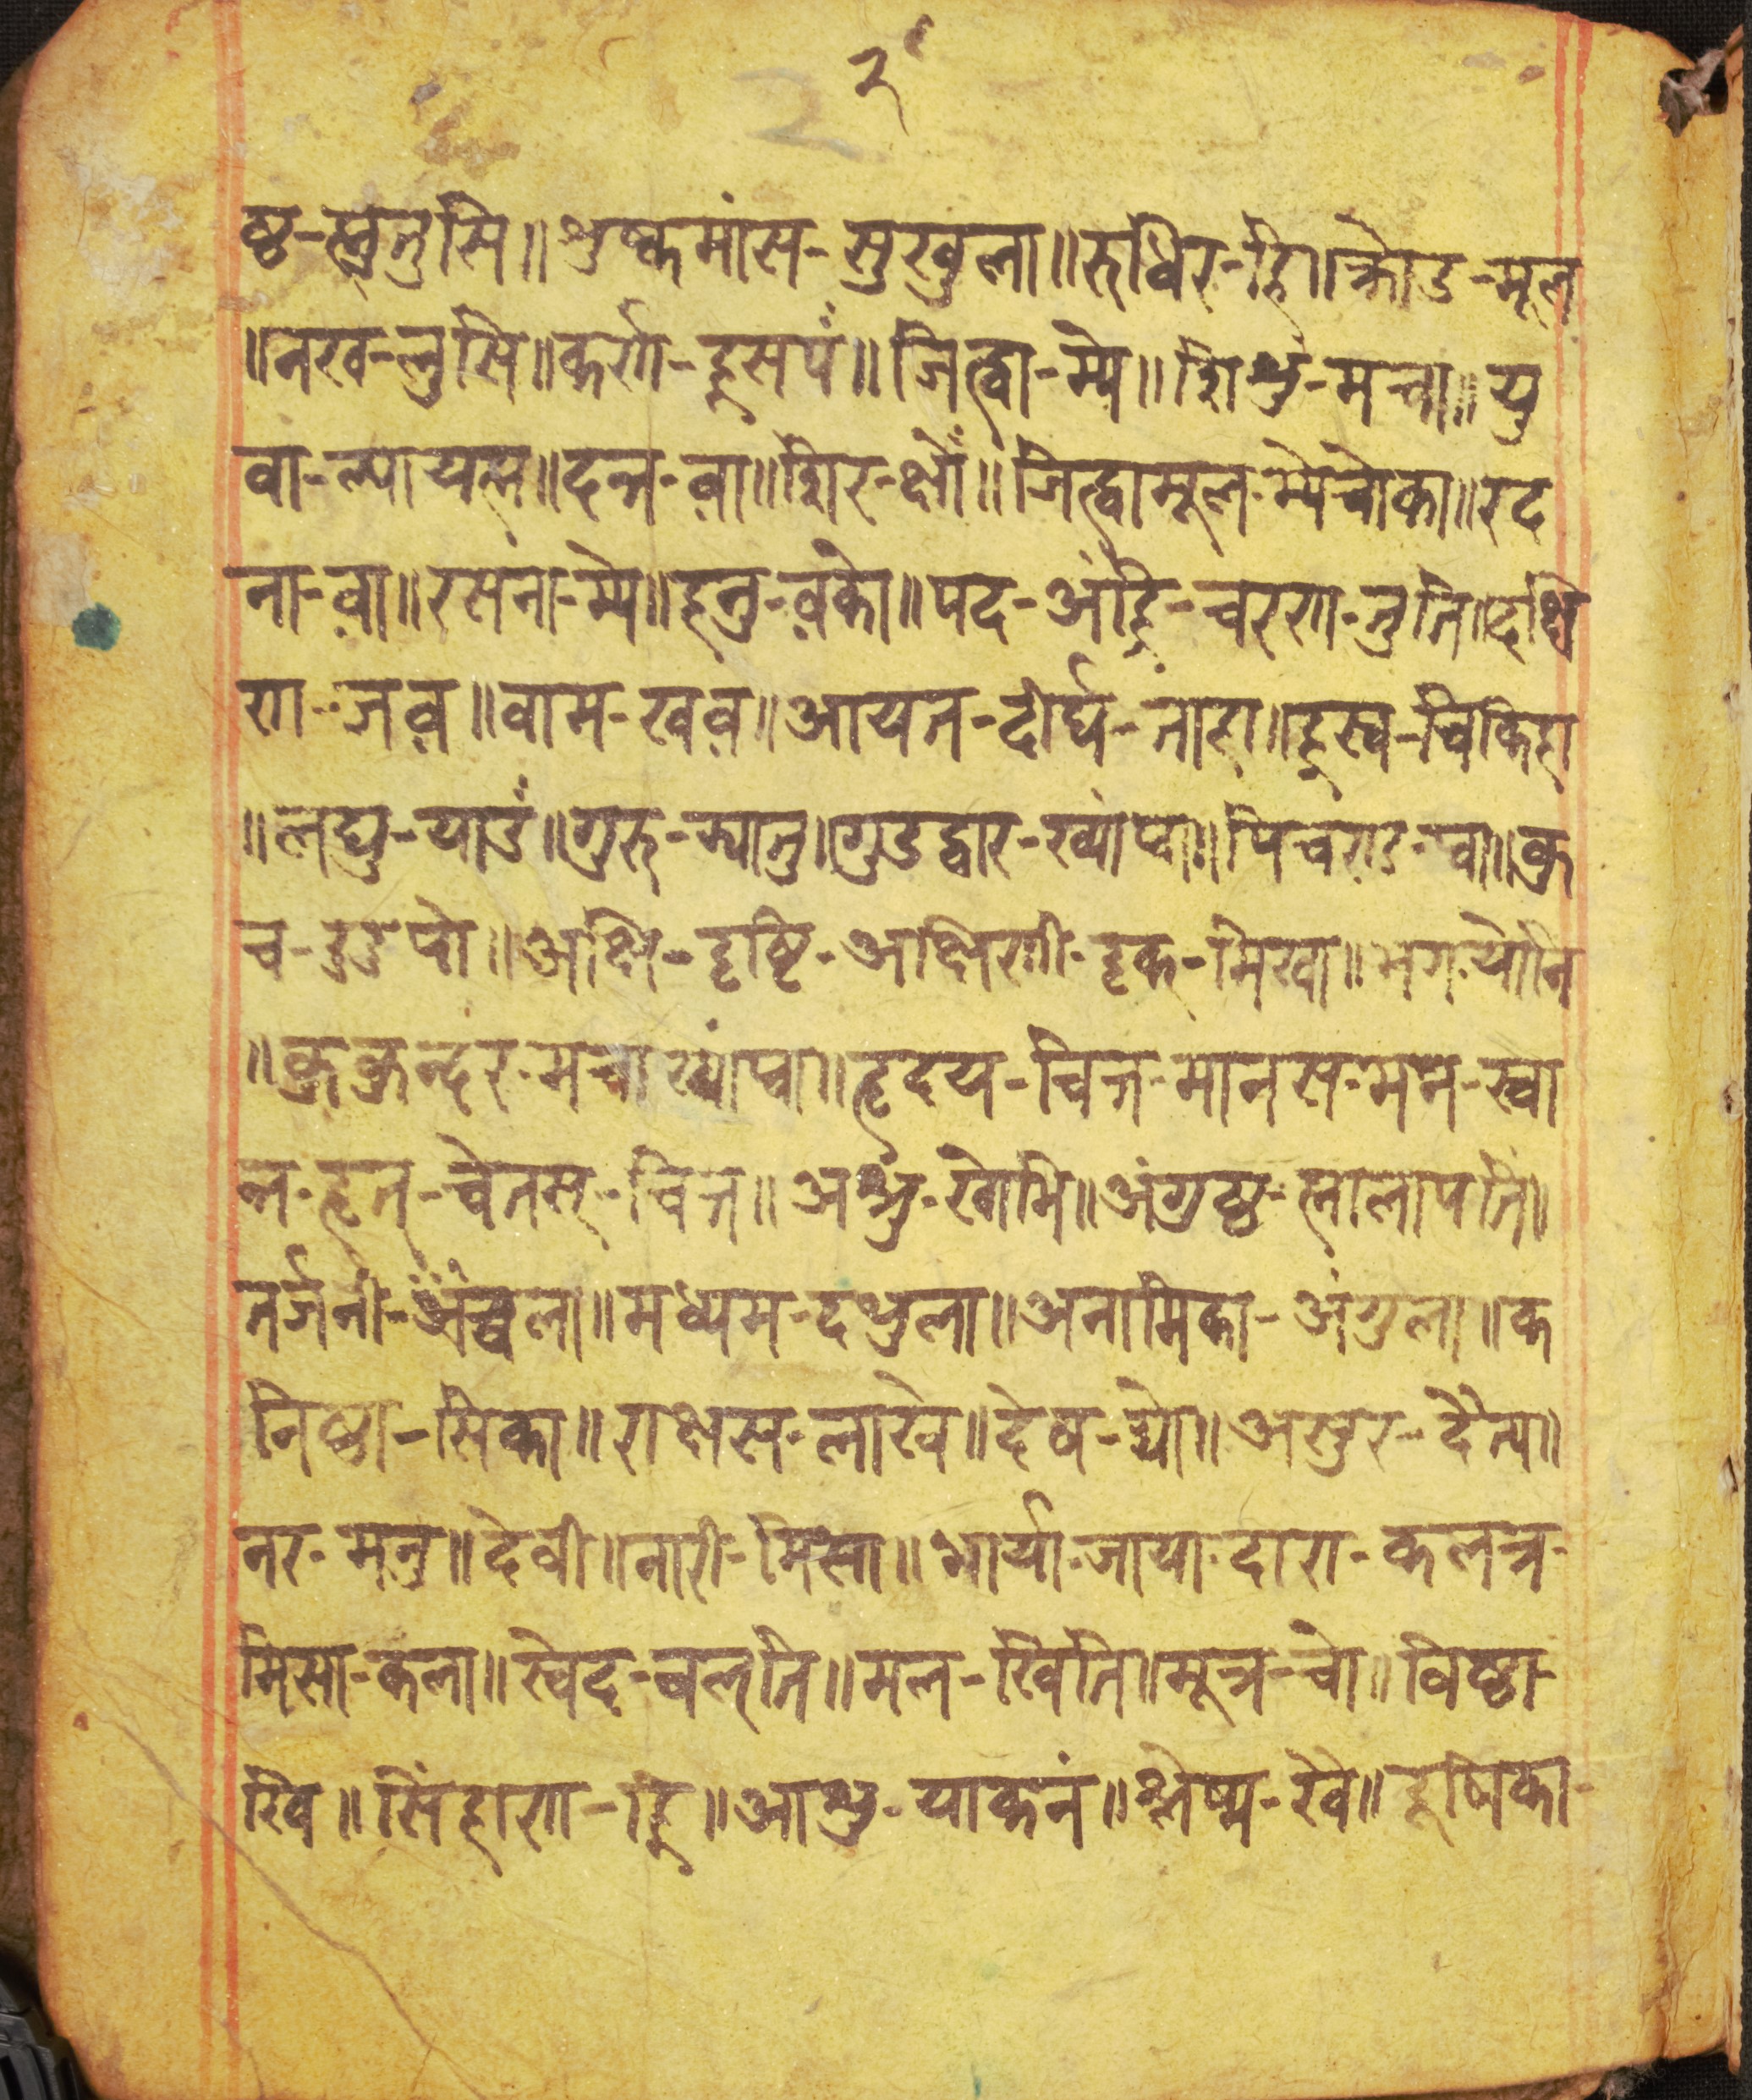 २
2
ष्ठ-स्तुतुसि॥शुष्कमांस-सुखुला॥रुधिर-हि॥क्रोड-मूल
॥नख-लुसि॥कर्ण-ह्नसपं॥जिह्वा-म्ये॥शिशु-मचा॥यु
वा-ल्यायह्म॥दन्त-व़ा॥शिर-क्षों॥जिह्वामूल-म्येचोका॥रद
ना-व़ा॥रसना-म्ये॥हनु-व़को॥पद-अंह्रि-चरण-तुति॥दक्षि
ण-जव़॥वाम-खव़॥आयत-दीर्घ-ताहा॥ह्रस्व-चिकिहा
॥लघु-याउं॥गुरु-झ्यातु॥गुडद्वार-ख्यांप्वा॥पिचण्ड-प्वा॥कु
च-दुदुपो॥अक्षि-दृष्टि-अक्षिणी-दृक-मिखा॥भग-योनि
॥कुकुन्दर-मचाख्यांप्वा॥हृदय-चित्त-मानस-मन-स्वा
न्त-हृत्-चेतस्-चित्त॥अश्रु-खोभि॥अंगुष्ठ-ह्मालापतिं॥
तर्जनी-॥मध्यम-दथुला॥अनामिका-अंगुला॥क
निष्ठा-सिका॥राक्षस-लाखे॥देव-द्यो॥असुर-दैत्य॥
नर-मनु॥देवी॥नारी-मिसा॥भार्या-जाया-दारा-कलत्र-
मिसा-कला॥स्वेद-चलति॥मल-खिति॥मूत्र-चो॥विष्ठा-
खि॥सिंहाण-ह्नि॥आश्रु-याकनं॥श्लेष्म-खै॥दूषिका-